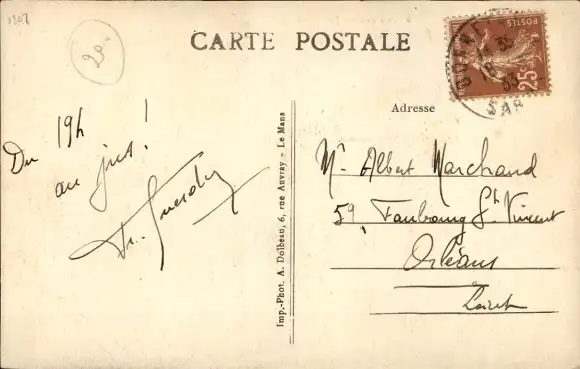 20
CARTE POSTALE
POSTES
25c
SAR
Du 19h
au jus!
Imp.-Phot. A. Dolbeau, 6, rue Auvray - Le Mans
Adresse
Mr Albert Marchand
59, Faubourg St Vincent
Orléans
Loiret